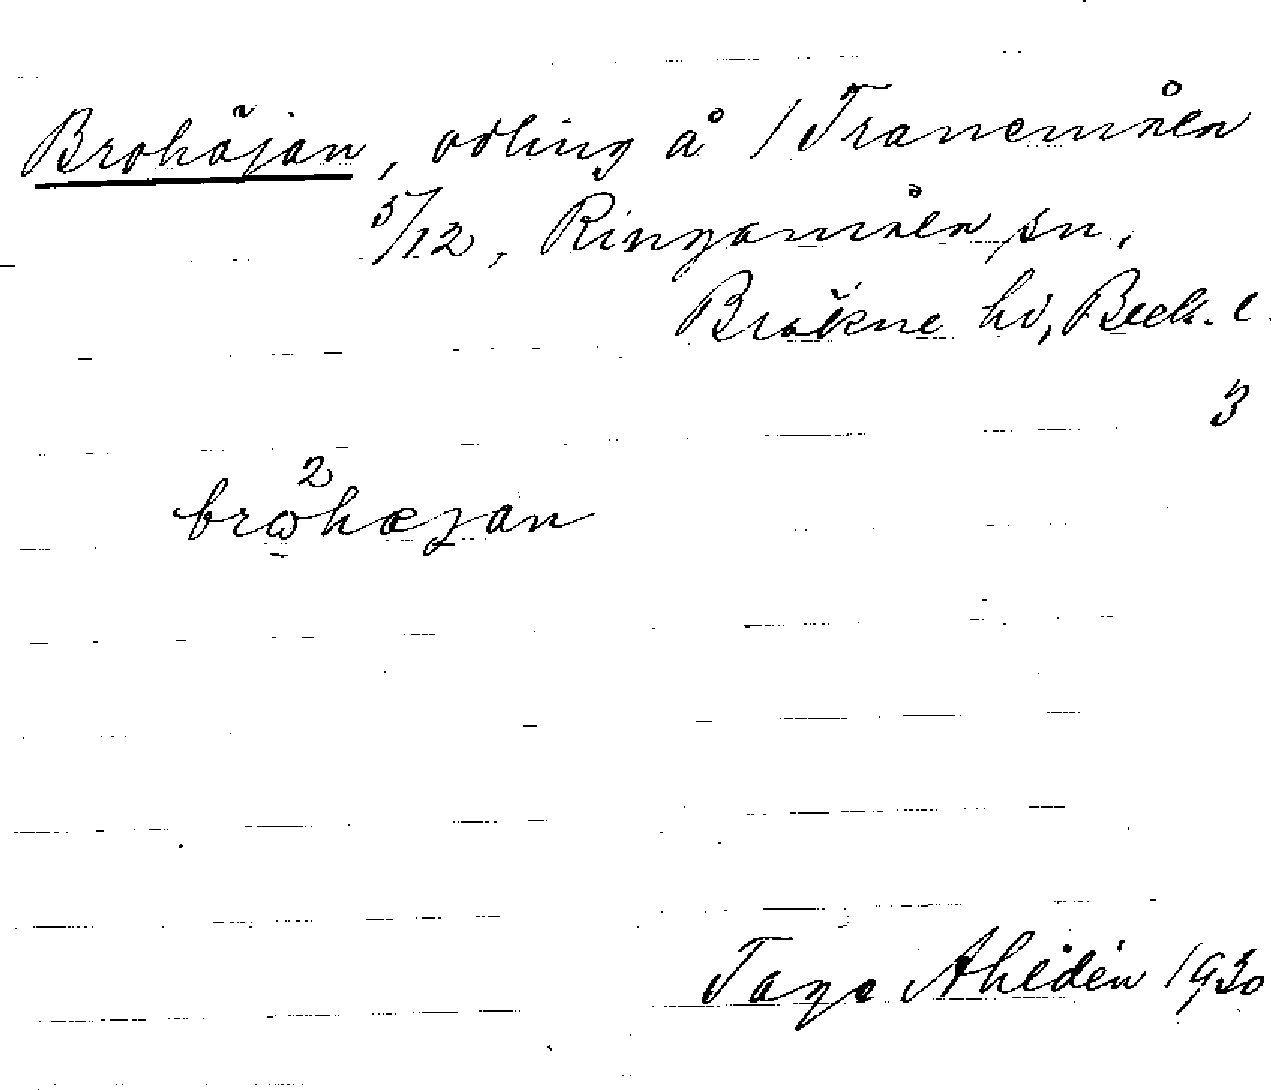 Brohöjan, odling å / Tranemåla
5/12, Ringamåla sn,
Bräkne hd, Blek. l.
3
Tage Ahldén 1930